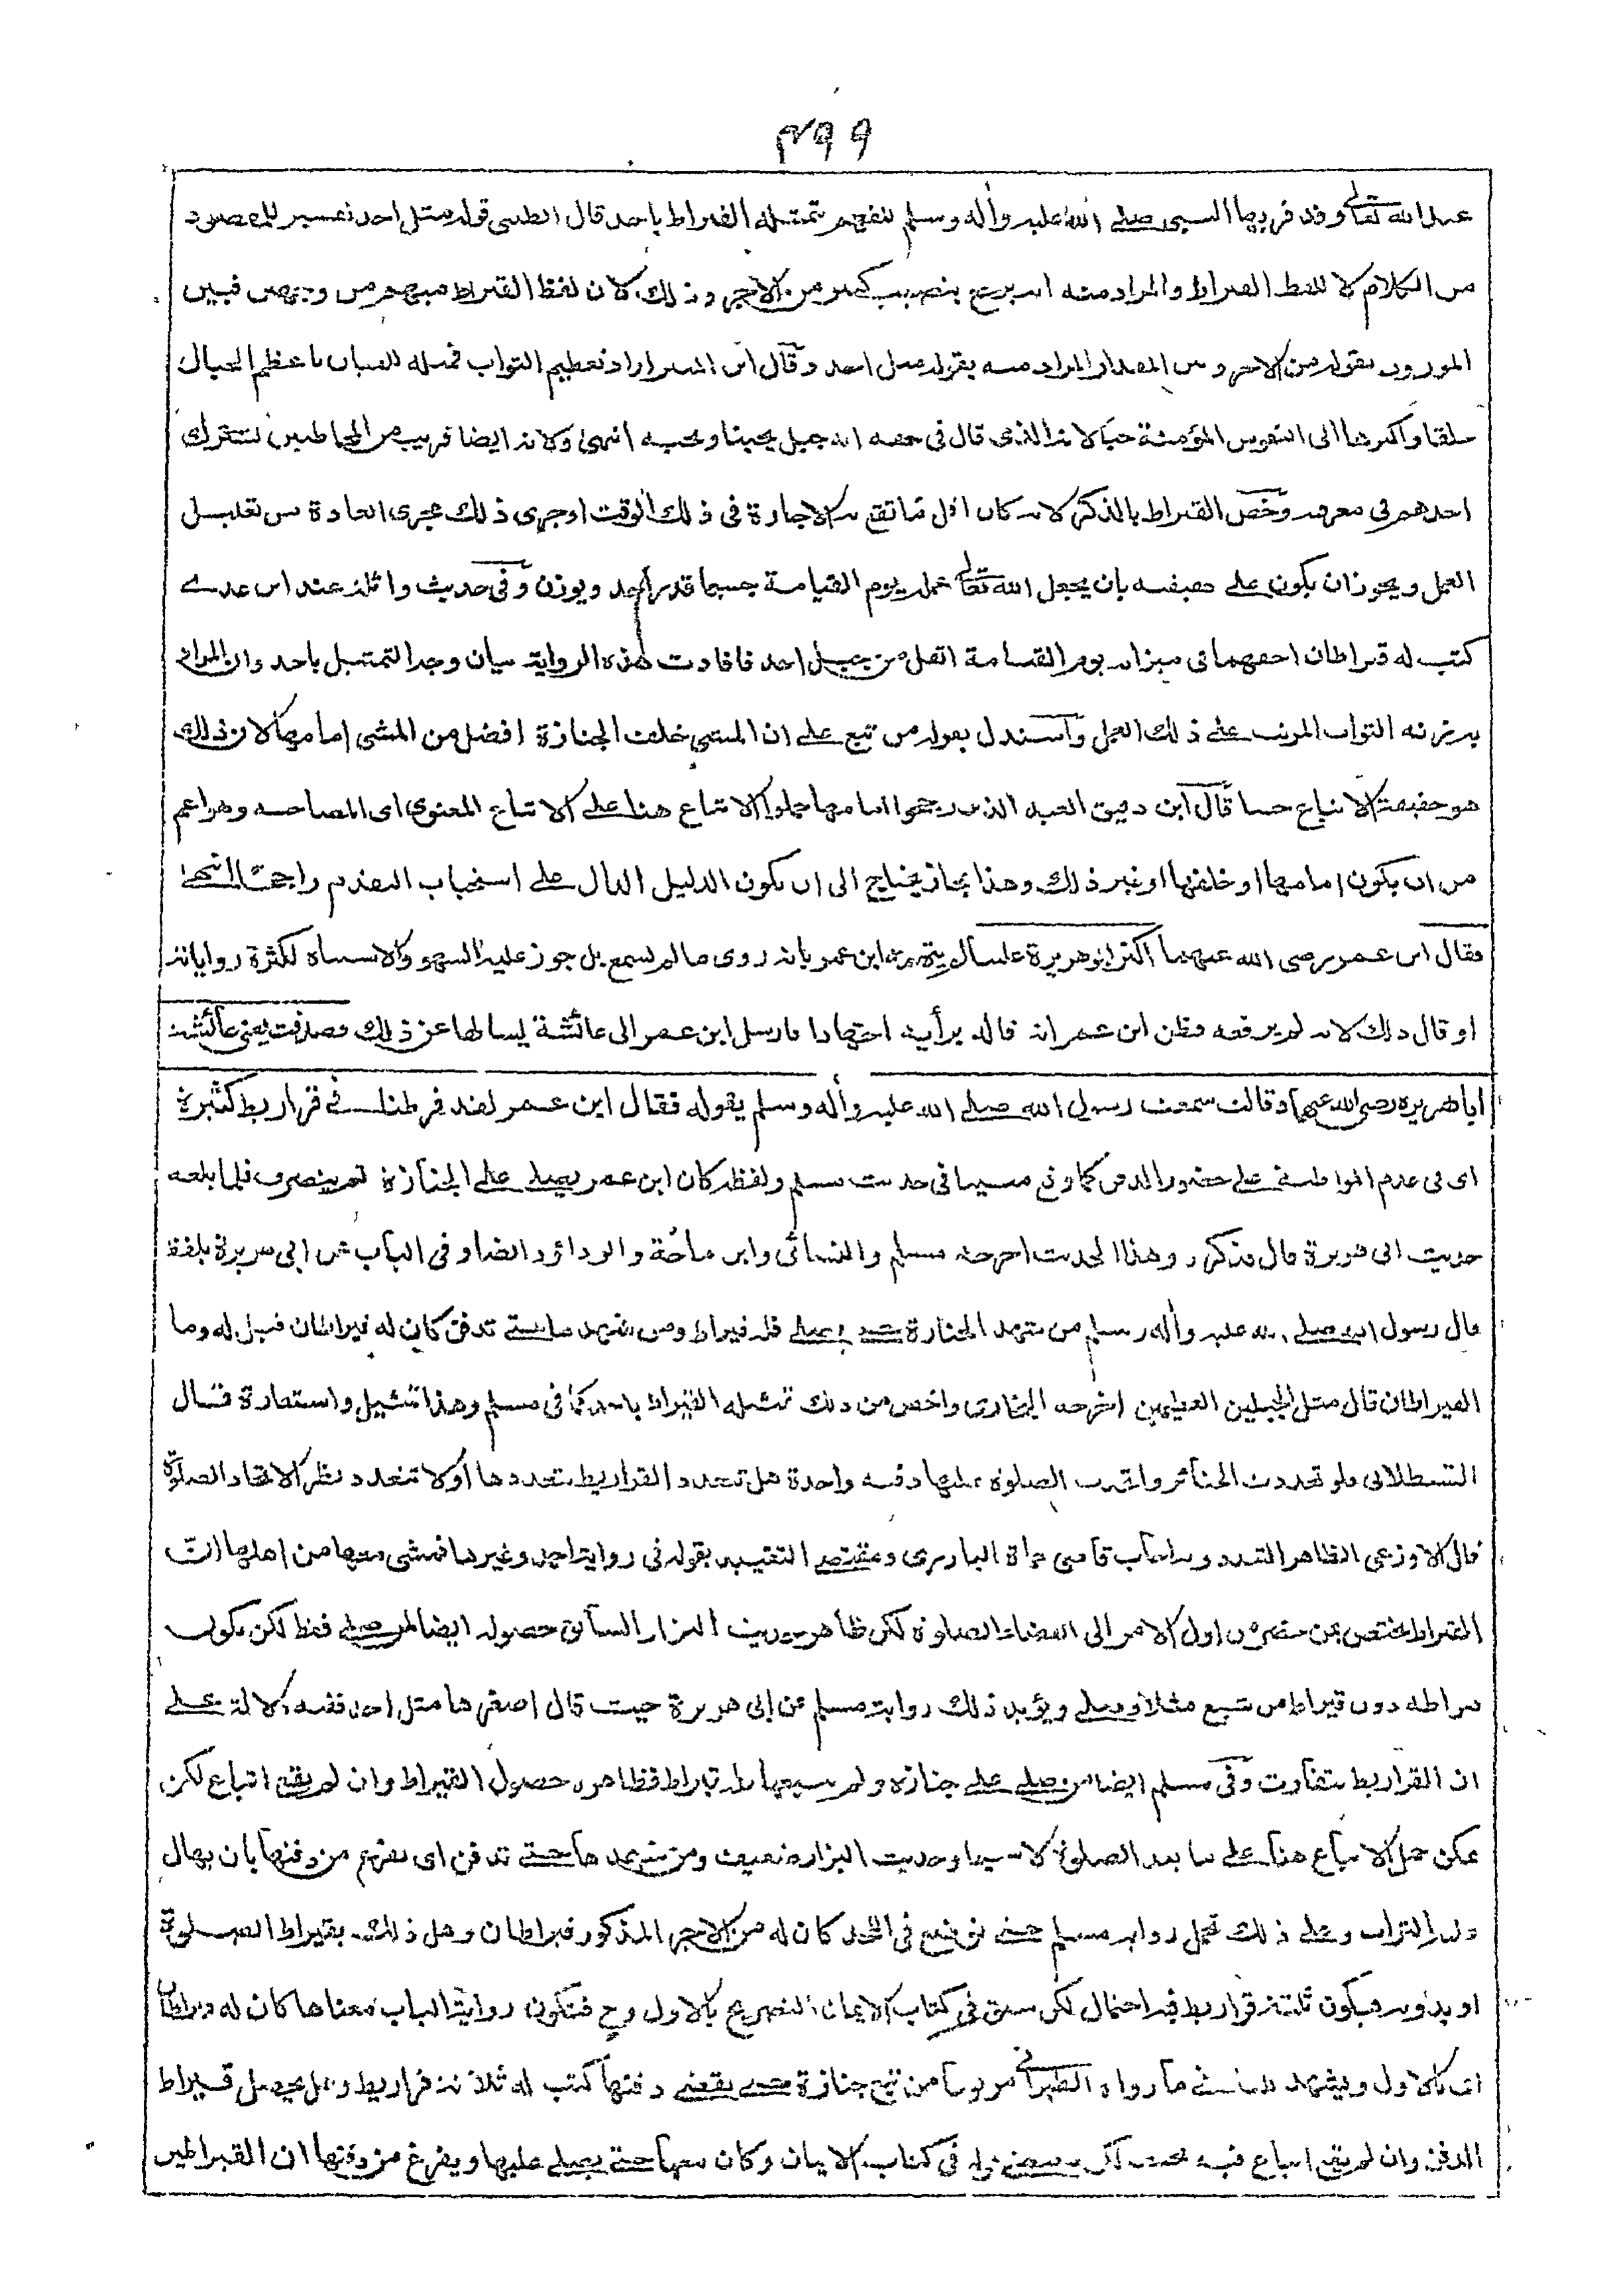 ٤٩٩
عند الله تعالى وقد قربها النبي صلى الله عليه وأله وسلم للفهم بتمثيله القيراط باحد قال الطيبي قوله مثل احد تفسير للمقصود
من الكلام لا للفظ القيراط والمراد منه انه يرجع بنصيب كبير من الاجر وذلك لان لفظ القيراط مبهم من وجهين فبين
الموزون بقوله من الاجر وبين المقدار المراد منه بقوله مثل احد وقال ابن المنير اراد تعظيم الثواب فمثله للعيان باعظم الجبال
خلقا واكثرها الى النفوس المؤمنة حبا لانه الذى قال فى حقه انه جبل يحبنا ونحبه انتهى ولانه ايضا قريب من المخاطبين تشترك
احدهم فى معرفته وخص القيراط بالذكر لانه كان اقل ما تقع به الاجارة فى ذلك الوقت او جرى ذلك مجرى العادة من تقليل
العمل ويجوز ان يكون على حقيقته بان يجعل الله تعالى عمله يوم القيامة جسما قدر احد ويوزن وفى حديث واثلة عند ابن عدى
كتب له قيراطان اخفهما فى ميزانه يوم القيامة اثقل من جبل احد فافادت هذه الرواية بيان وجه التمثيل باحد وان المراد
به زنة الثواب المرتب على ذلك العمل واستدل بقوله من تبع على ان المشى خلف الجنازة افضل من المشى امامها لان ذلك
هو حقيقة الاتباع حسا قال ابن دقيق العيد الذين رجحوا امامها حملوا الاتباع هنا على الاتباع المعنوى اى المصاحبة وهو اعم
من ان يكون امامها او خلفها او غير ذلك وهذا مجاز يحتاج الى ان يكون الدليل الدال على استحباب التقدم راجحا انتهى
فقال ابن عمر رضى الله عنهما أكثر ابو هريرة علينا لم يتهمه ابن عمر بانه روى ما لم يسمع بل جوز عليه السهو والاشتباه لكثرة رواياته
او قال ذلك لانه لم يرفعه فظن ابن عمر انه قاله برأيه اجتهادا فارسل ابن عمر الى عائشة يسالها عن ذلك فصدقت يعنى عائشة
ابا هريرة رضى الله عنهما وقالت سمعت رسول الله صلى الله عليه وأله وسلم يقوله فقال ابن عمر لقد فرطنا فى قراريط كثيرة
اى فى عدم المواظبة على حضور الدفن كما وقع مبينا فى حديث مسلم ولفظه كان ابن عمر يصلى على الجنازة ثم ينصرف فلما بلغه
حديث ابى هريرة قال فذكره وهذا الحديث اخرجه مسلم والنسائى وابن ماجة وابو داؤد ايضا وفى الباب عن ابى هريرة بلفظ
قال رسول الله صلى الله عليه وأله وسلم من شهد الجنازة حتى يصلى فله قيراط ومن شهد حتى تدفن كان له قيراطان قيل له وما
القيراطان قال مثل الجبلين العظيمين اخرجه البخارى واخص من ذلك تمثيله القيراط باحد كما فى مسلم وهذا تمثيل واستعارة قال
القسطلانى ولو تعددت الجنائز واتحدت الصلوة عليها دفعة واحدة هل تعدد القراريط بتعددها او لا تتعدد نظرا لاتحاد الصلوة
قال الاوزعى الظاهر التعدد وبه اجاب قاضى حماة البارزى ومقتضى التقييد بقوله فى رواية احمد وغيرها فمشى معها من اهلها انّ
القيراط يختص بمن حضر من اول الامر الى انقضاء الصلوة لكن ظاهر حديث البزار السابق حصوله ايضا لمن صلى فقط لكن يكون
قيراطه دون قيراط من شيع مثلا وصلى ويؤيد ذلك رواية مسلم عن ابى هريرة حيث قال اصغرهما مثل احد ففيه دلالة على
ان القراريط تتفاوت وفى مسلم ايضا من صلى على جنازة ولم يتبعها فله قيراط فظاهره حصول القيراط وان لم يقع اتباع لكن
يمكن حمل الاتباع هنا على ما بعد الصلوة لا سيما وحديث البزار ضعيف ومن شهدها حتى تدفن اى يفرغ من دفنها بان يهال
عليه التراب وعلى ذلك تحمل رواية مسلم حتى توضع فى اللحد كان له من الاجر المذكور قيراطان وهل ذلك بقيراط الصلوة
او بدونه فيكون ثلثة قراريط فيه احتمال لكن سبق فى كتاب الايمان التصريح بالاول وح فتكون رواية الباب معناها كان له قيراطان
اى بالاول ويشهد للثانى ما رواه الطبرانى مرفوعا من تبع جنازة حتى يقضى دفنها كتب له ثلاثة قراريط وهل يحصل قيراط
الدفن وان لم يقع اتباع فيه بحث لكن مقتضى قوله فى كتاب الايمان وكان معها حتى يصلى عليها ويفرغ من دفنها ان القيراطين